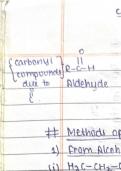 O
||
{ carbonyl R-C-H
compounds
due to } Aldehyde
O
||
C
## Methods of
1) From Alcoh
(i) H₃C-CH₂-